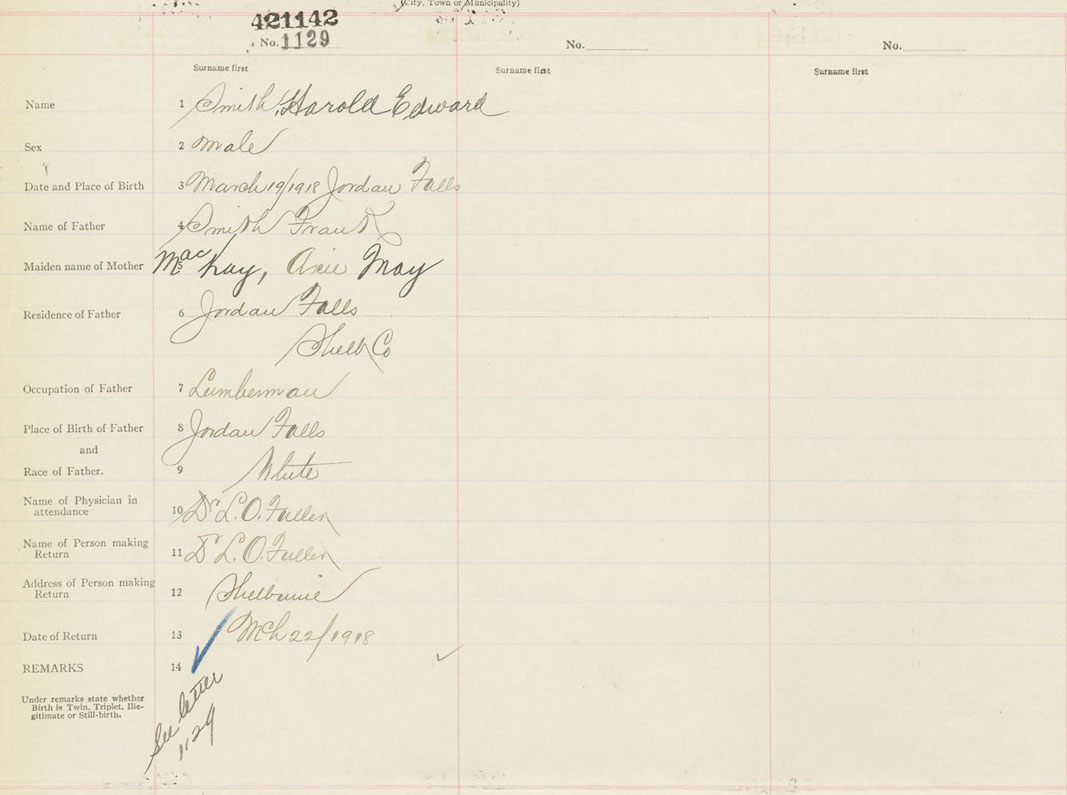 (City, Town or Municipality)
421142
No. 1129
No.
No.
Surname first
Surname first
Surname first
Name 1 Smith, Harold Edward
Sex 2 Male
Date and Place of Birth 3 March 19/1918 Jordan Falls
Name of Father 4 Smith Frank
Maiden name of Mother 5 MacKay, May
Residence of Father 6 Jordan Falls
Shelb Co
Occupation of Father 7 Lumberman
Place of Birth of Father 8 Jordan Falls
and
Race of Father. 9 White
Name of Physician in
attendance 10 Dr L. O. Fuller
Name of Person making
Return 11 Dr L. O. Fuller
Address of Person making
Return 12 Shelburne
Date of Return 13 Mch 22/1918
REMARKS 14
Under remarks state whether
Birth is Twin, Triplet, Ille-
gitimate or Still-birth.
See letter
1129